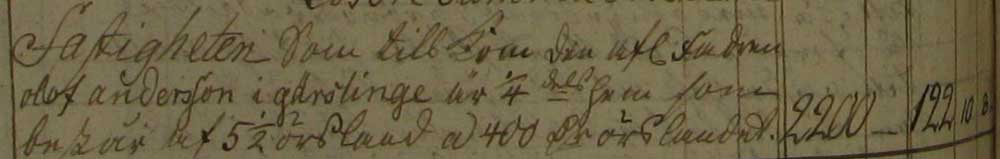 Fastigheten Som till Kom den afl. fadren
olof andersson i gärslinge är 1/4 dels hem som
består af 5 1/2 örsland a 400 Rd örslandet. 2200 — 122 10 8